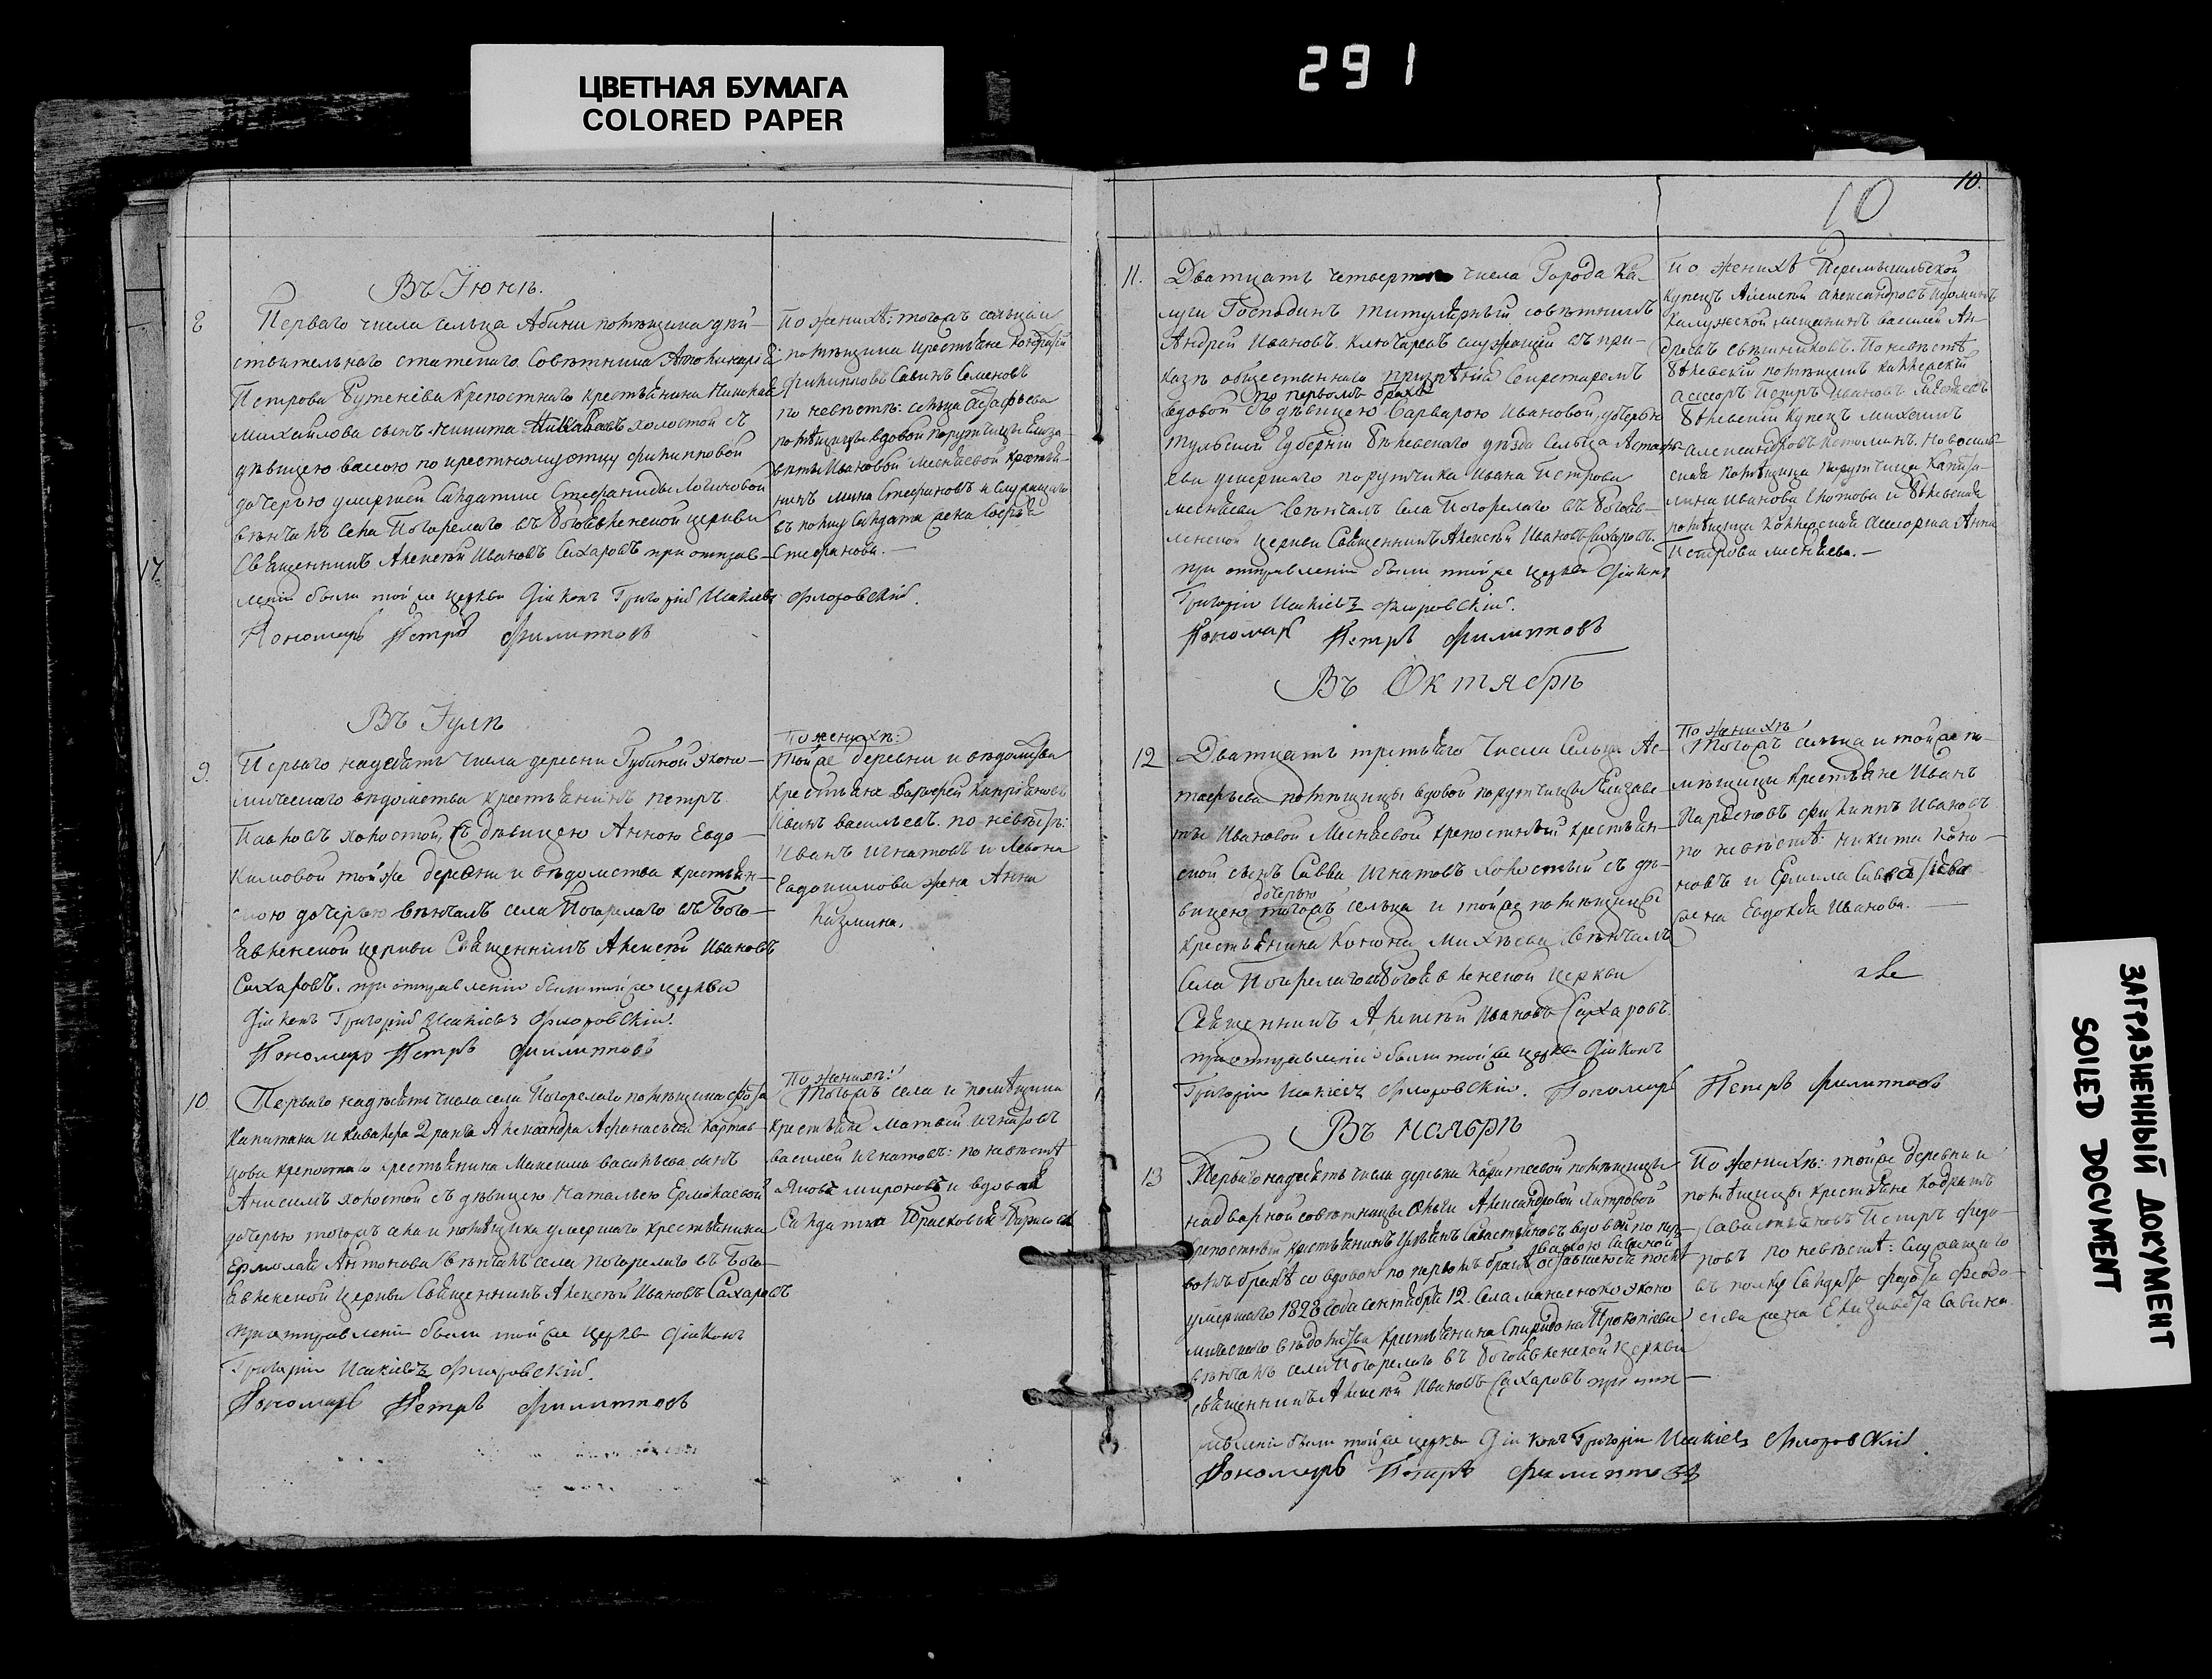 ЦВЕТНАЯ БУМАГА
COLORED PAPER
291
10
10.
Въ Іюнѣ.
8
Перваго числа сельца помѣщика дѣй-
ствительнаго статскаго Совѣтника
Петрова крепостнаго крестьянина
Михайлова сынъ Никита холостой съ
дѣвицею по крестному отцу Филипповой
дочерью умершей Салдатки Стефаниды Логиновой
вѣнчалъ села Погорелаго въ Богоявленской церкви
Священникъ Алексѣй Ивановъ Сахаровъ при отправ-
леніи были той же церкви Діаконъ Григорій Исакіевъ Флоровскій.
Пономарь Петръ Филипповъ
По женихѣ: тогожъ сельца и
помѣщика крестьяне
Филипповъ Савинъ Семеновъ
по невѣстѣ: сельца Астафьева
помѣщицы вдовой порутчицы Елиза-
веты Ивановой Месняевой крестья-
нинъ Стефановъ и служащаго
въ полку Салдата жена
Стефанова.
Въ Іулѣ
9.
Перваго надесять числа деревни Губиной эконо-
мическаго вѣдомства крестьянинъ Петръ
Павловъ холостой, съ дѣвицею Анною Евдо-
кимовой той же деревни и вѣдомства крестьян-
скою дочерью вѣнчалъ села Погорелаго въ Бого-
явленской церкви Священникъ Алексѣй Ивановъ
Сахаровъ. при отправленіи были той же церкви
Діаконъ Григорій Исакіевъ Флоровскій.
Пономарь Петръ Филипповъ
По женихѣ:
той же деревни и вѣдомства
крестьяне Кипріяновъ
Иванъ Васильевъ. по невѣстѣ:
Иванъ Игнатовъ и
Евдокимова жена Анна
Казмина.
10
Перваго надесять числа села Погорелаго помѣщика флота
Капитана и Кавалера 2 ранга Александра Афанасьева
крепостнаго крестьянина Максима Васильева сынъ
Анисимъ холостой съ дѣвицею Натальею Ермолаевой
дочерью тогожъ села и помѣщика умершаго крестьянина
Ермолая Антонова вѣнчалъ села Погорелаго въ Бого-
явленской церкви Священникъ Алексѣй Ивановъ Сахаровъ
при отправленіи были той же церкви Діаконъ
Григорій Исакіевъ Флоровскій.
Пономарь Петръ Филипповъ
По женихѣ:
тогожъ села и помѣщика
крестьяне Матвей Игнатовъ
Василей Игнатовъ: по невѣстѣ
Яковъ Мироновъ и вдовая
Салдатка Прасковья Борисова
11.
Дватцать четвертаго числа Города Ка-
луги Господинъ титулярный совѣтникъ
Андрей Ивановъ Ключаревъ служащій въ при-
казѣ общественнаго призрѣнія Секретаремъ
по первомъ бракѣ
вдовой съ дѣвицею Варварою Ивановой, дочерью
Тульской Губерніи Бѣлевскаго уѣзда сельца Астафь-
ева умершаго порутчика Ивана Петрова
Месняева вѣнчалъ села Погорелаго въ Богояв-
ленской церкви Священникъ Алексѣй Ивановъ Сахаровъ.
при отправленіи были той же церкви Діаконъ
Григорій Исакіевъ Флоровскій.
Пономарь Петръ Филипповъ
По женихѣ Перемышльской
купецъ Алексѣй Александровъ
Калужской мещанинъ Василей Ан-
дреевъ Свѣшниковъ. По невѣстѣ
Бѣлевскій помѣщикъ каллежскій
асесоръ Петръ Ивановъ
Бѣлевскій купецъ Михаилъ
Александровъ Новосиль-
ская помѣщица порутчица Капито-
лина Иванова и Бѣлевская
помѣщица Коллежская Асесорша Анна
Петрова Месняева.
Въ Октябрѣ
12
Дватцать третьяго числа сельца Ас-
тафьева помѣщицы вдовой порутчицы Елизаве-
ты Ивановой Месняевой крепостный крестьян-
ской сынъ Савва Игнатовъ холостый съ дѣ-
дочерью
вицею тогожъ сельца и той же помѣщицы
крестьянина Конона Михѣева вѣнчалъ
села Погорелаго Богоявленской церкви
Священникъ Алексѣй Ивановъ Сахаровъ.
при отправленіи были той же церкви Діаконъ
Григорій Исакіевъ Флоровскій. Пономарь Петръ Филипповъ
По женихѣ
тогожъ сельца и той же по-
мѣщицы крестьяне Иванъ
Парѳеновъ Филиппъ Ивановъ
по невѣстѣ: Никита Коно-
новъ и Ермила
жена Евдокія Иванова.
Въ Ноябрѣ
13
Перваго надесять числа деревни помѣщицы
надворной совѣтницы Ольги Александровой
крепостный крестьянинъ Савастьяновъ вдовый по пер-
вомъ бракѣ со вдовою по первомъ бракѣ оставшеюся послѣ
умершаго 1828 года Сентября 12. села эконо
мическаго вѣдомства крестьянина Спиридона Прокопіева
вѣнчалъ села Погорелаго въ Богоявленской церкви
священникъ Алексѣй Ивановъ Сахаровъ при отп-
равленіи были той же церкви Діаконъ Григорій Исакіевъ Флоровскій
Пономарь Петръ Филипповъ
По женихѣ: той же деревни и
помѣщицы крестьяне Кодратъ
Савастьяновъ Петръ Федо-
ровъ по невѣстѣ: служащаго
въ полку Салдата Федота Феодо-
сіева жена Елизавета Савина.
ЗАГРЯЗНЕННЫЙ ДОКУМЕНТ
SOILED DOCUMENT